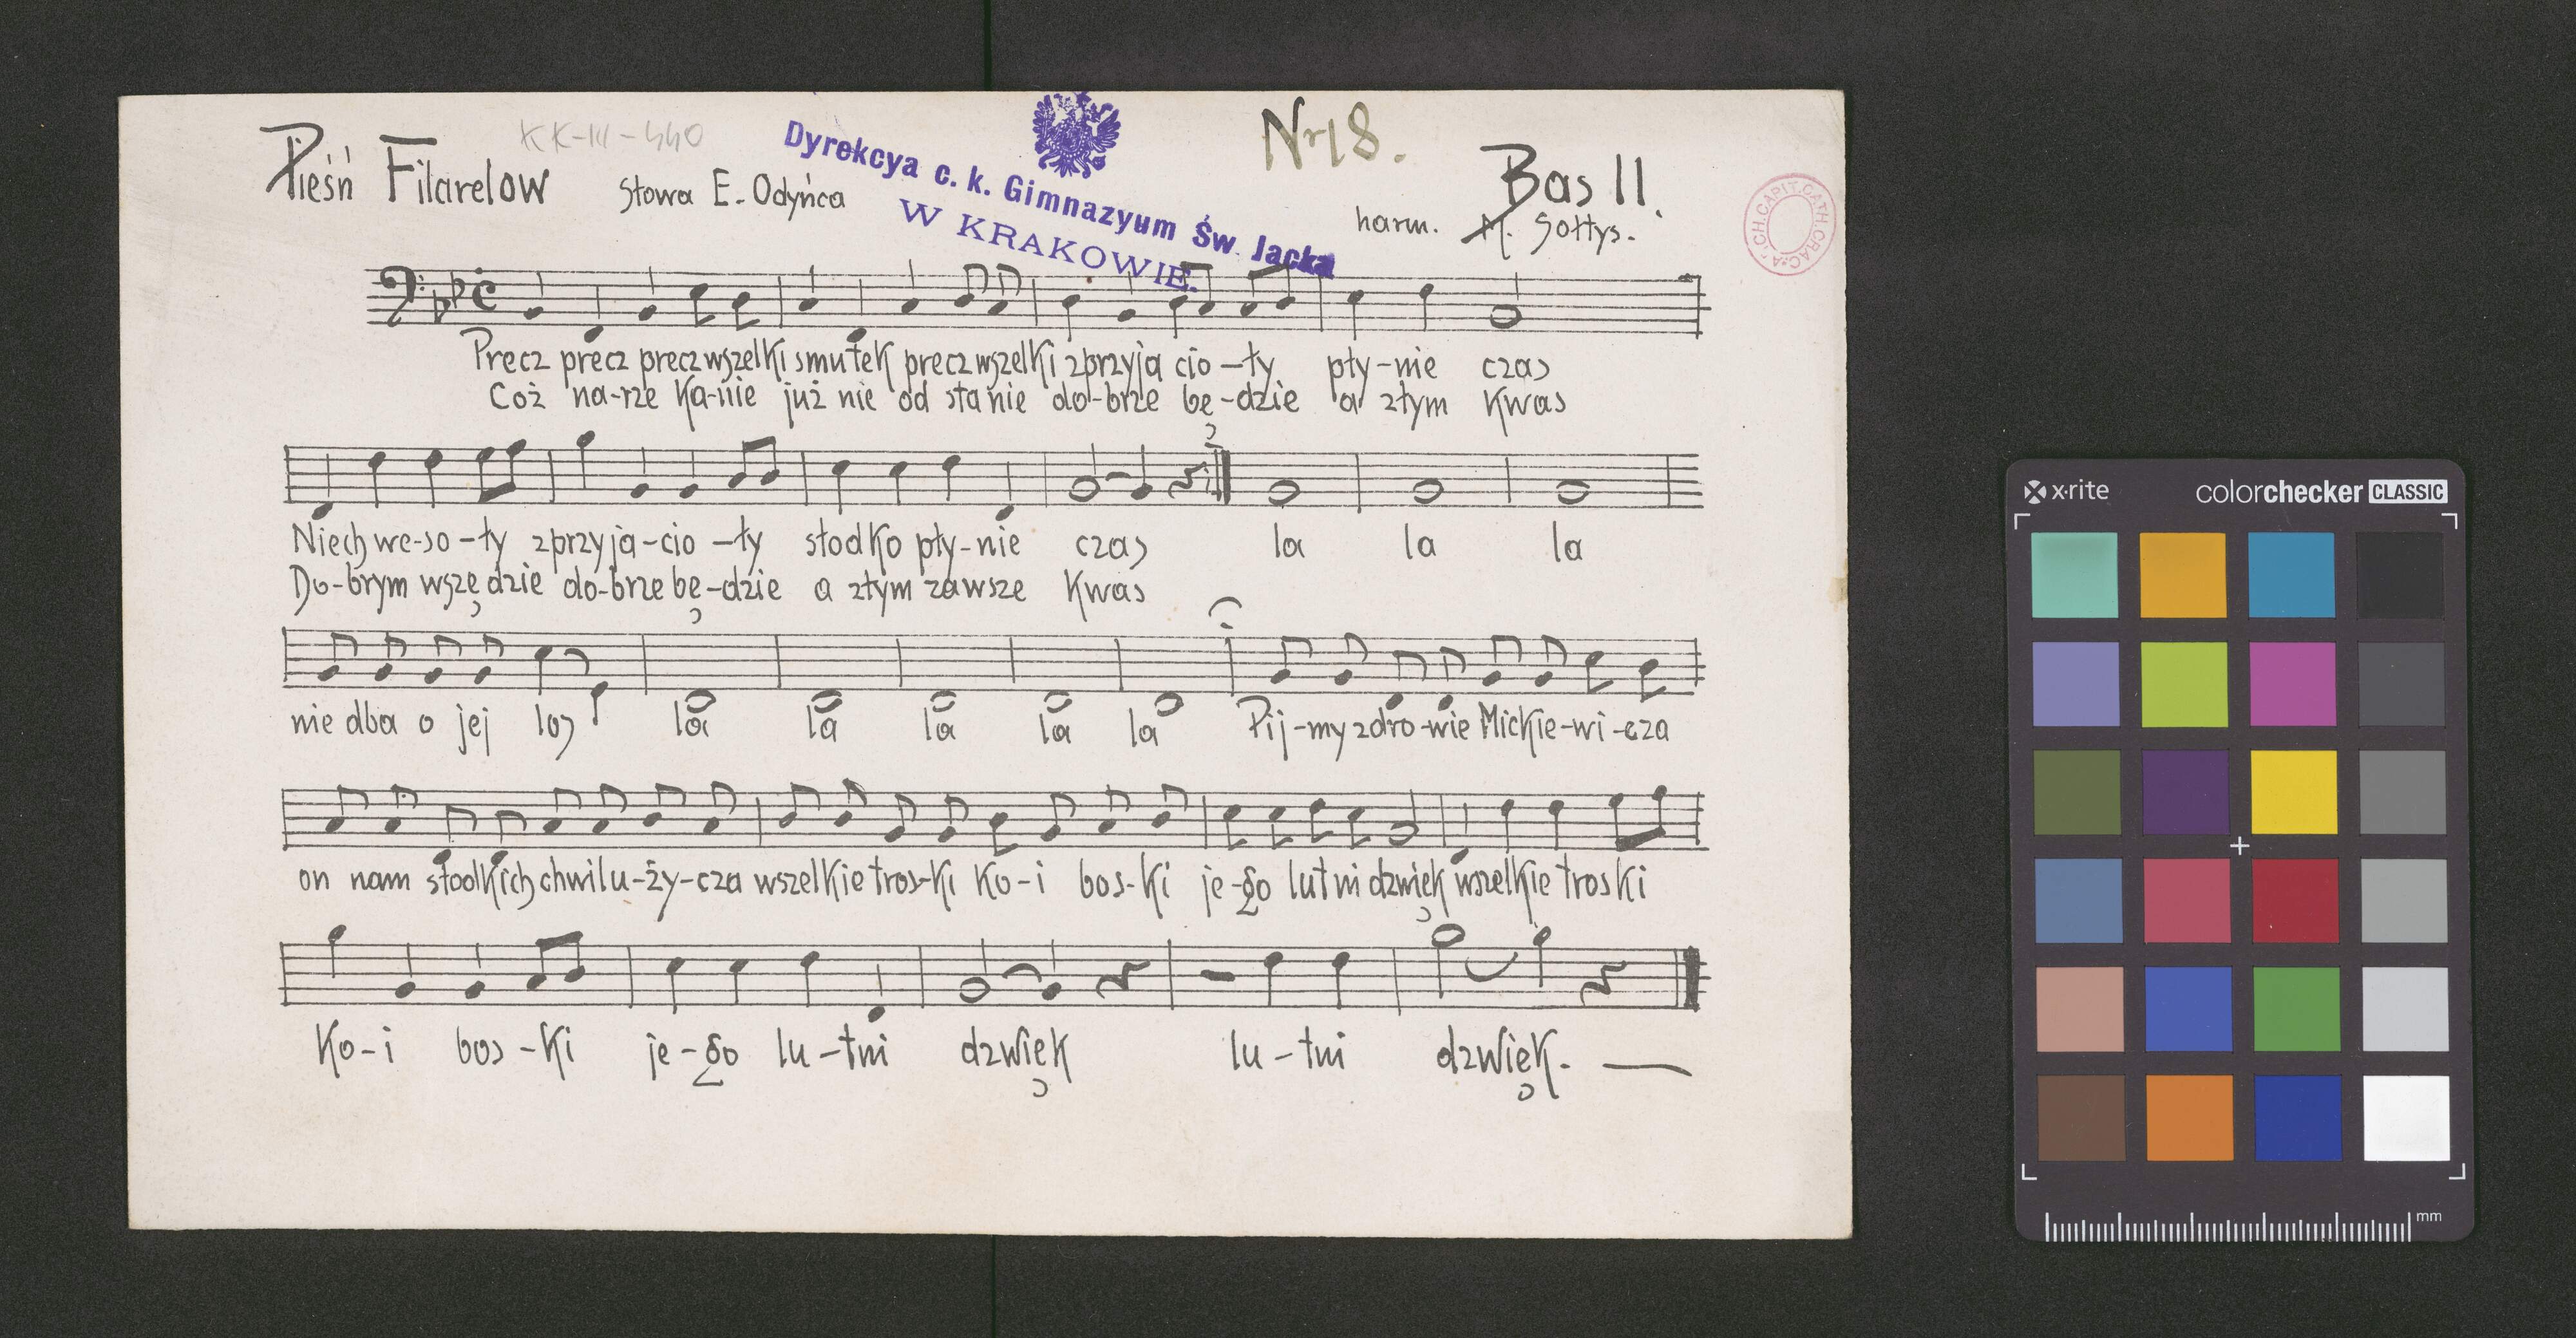 KK-III-440
Nr 18.
Pieśń Filaretow
Słowa E. Odyńca
Dyrekcya c. k. Gimnazyum Św. Jacka
W KRAKOWIE.
Bas II.
harm. M. Sołtys.
ARCH.CAPIT.CATH.CRAC.
Precz precz precz wszelki smutek precz wszelki z przyja cio-ły pły-nie czas
Coż na-rze ka-nie już nie od sta nie do-brze bę-dzie a złym kwas
Niech we-so-ły z przyja-cio-ły słodko pły-nie czas la la la
Do-brym wszę dzie do-brze bę-dzie a złym zawsze kwas
nie dba o jej los la la la la la Pij-my zdro-wie Mickie-wi-cza
on nam słodkich chwil u-ży-cza wszelkie tros-ki ko-i bos-ki je-go lutni dzwięk wszelkie troski
Ko-i bos-ki je-go lu-tni dzwięk lu-tni dzwięk.
x·rite
colorchecker CLASSIC
mm